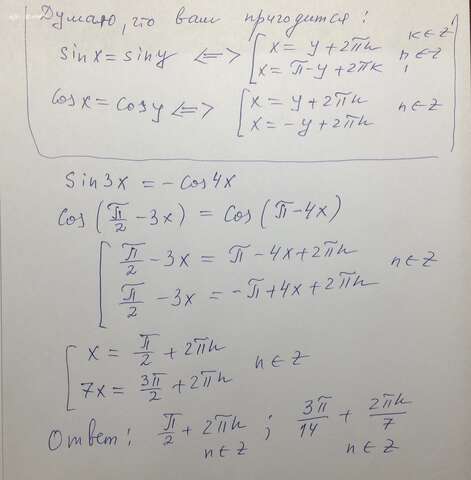 Думаю, что вам пригодится:
sin x = sin y ⟺ [ x = y + 2πn
x = π - y + 2πk , k ∈ Z n ∈ Z
cos x = cos y ⟺ [ x = y + 2πn
x = -y + 2πn n ∈ Z
sin 3x = - cos 4x
cos (π/2 - 3x) = cos (π - 4x)
[ π/2 - 3x = π - 4x + 2πn
π/2 - 3x = -π + 4x + 2πn n ∈ Z
[ x = π/2 + 2πn
7x = 3π/2 + 2πn n ∈ Z
Ответ: π/2 + 2πn n ∈ Z ; 3π/14 + 2πn/7 n ∈ Z